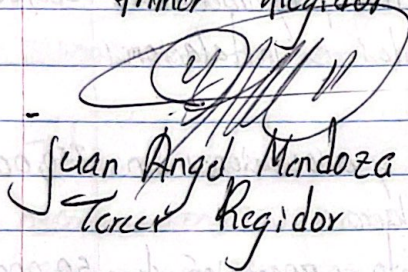 Regidor
Juan Angel Mendoza
Tercer Regidor